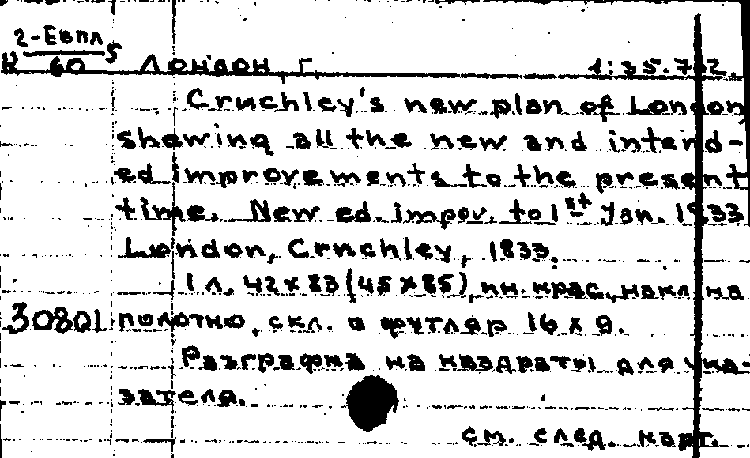 2-Евпл
К 60 5 Лондон, г. 1:35.702.
Cruchley's new plan of London
shewing all the new and intend-
ed improvements to the present
time. New ed. impov. to 1st Jan. 1833
London, Cruchley, 1833.
1 л. 42 x 83 (45 x 85), ин. крас., накл. на
30801 полотно, скл. в футляр 16 x 9.
Разграфка на квадраты для ука-
зателя.
см. след. карт.